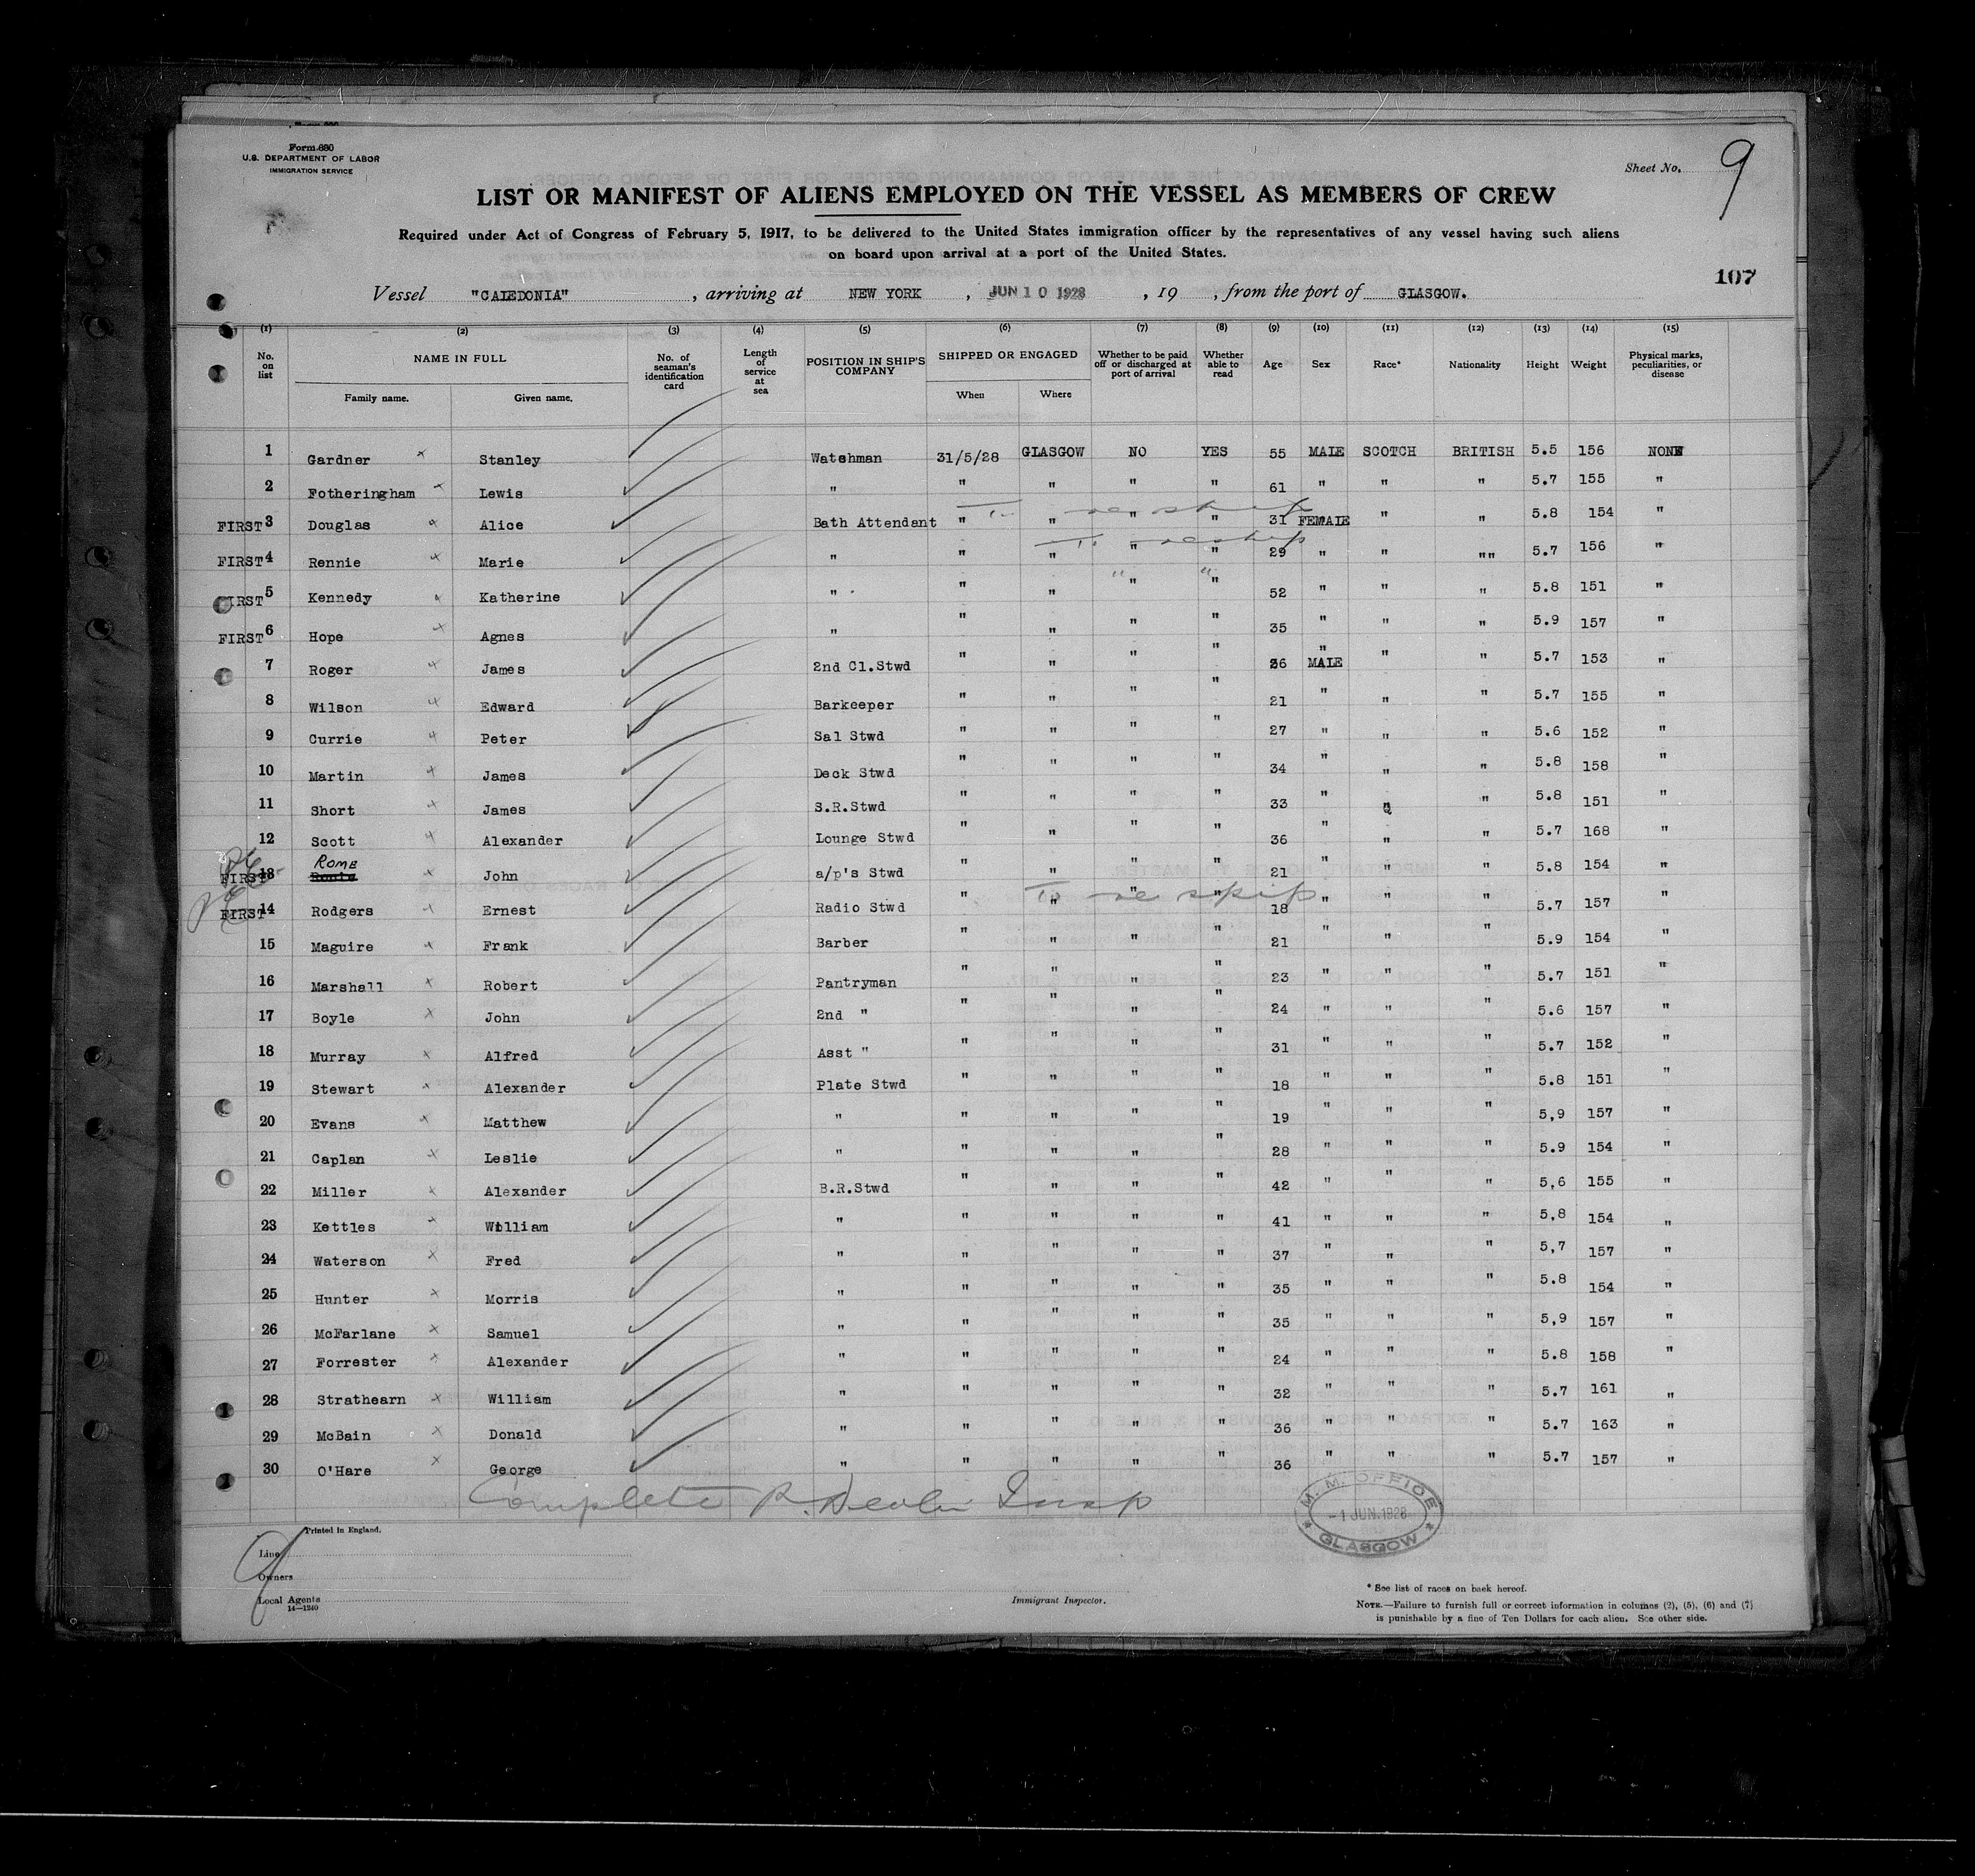 Form 680
U.S. DEPARTMENT OF LABOR
IMMIGRATION SERVICE
Sheet No. 9
LIST OR MANIFEST OF ALIENS EMPLOYED ON THE VESSEL AS MEMBERS OF CREW
Required under Act of Congress of February 5, 1917, to be delivered to the United States immigration officer by the representatives of any vessel having such aliens
on board upon arrival at a port of the United States.
107
Vessel "CALEDONIA" , arriving at NEW YORK , JUN 10 1928 , 19 , from the port of GLASGOW.
(1) (2) (3) (4) (5) (6) (7) (8) (9) (10) (11) (12) (13) (14) (15)
No. on list NAME IN FULL Family name. Given name. No. of seaman's identification card Length of service at sea POSITION IN SHIP'S COMPANY SHIPPED OR ENGAGED When Where Whether to be paid off or discharged at port of arrival Whether able to read Age Sex Race* Nationality Height Weight Physical marks, peculiarities, or disease
1 Gardner Stanley Watchman 31/5/28 GLASGOW NO YES 55 MALE SCOTCH BRITISH 5.5 156 NONE
2 Fotheringham Lewis " " " " " 61 " " " 5.7 155 "
To reship
FIRST 3 Douglas Alice Bath Attendant " " " " 31 FEMALE " " 5.8 154 "
To reship
FIRST 4 Rennie Marie " " " " " 29 " " "" 5.7 156 "
" "
FIRST 5 Kennedy Katherine " " " " " 52 " " " 5.8 151 "
FIRST 6 Hope Agnes " " " " " 35 " " " 5.9 157 "
7 Roger James 2nd Cl.Stwd " " " " 36 MALE " " 5.7 153 "
8 Wilson Edward Barkeeper " " " " 21 " " " 5.7 155 "
9 Currie Peter Sal Stwd " " " " 27 " " " 5.6 152 "
10 Martin James Deck Stwd " " " " 34 " " " 5.8 158 "
11 Short James S.R.Stwd " " " " 33 " " " 5.8 151 "
12 Scott Alexander Lounge Stwd " " " " 36 " " " 5.7 168 "
FIRST 13 ROME John a/p's Stwd " " " " 21 " " " 5.8 154 "
To reship
FIRST 14 Rodgers Ernest Radio Stwd " " " " 18 " " " 5.7 157 "
15 Maguire Frank Barber " " " " 21 " " " 5.9 154 "
16 Marshall Robert Pantryman " " " " 23 " " " 5.7 151 "
17 Boyle John 2nd " " " " " 24 " " " 5.6 157 "
18 Murray Alfred Asst " " " " " 31 " " " 5.7 152 "
19 Stewart Alexander Plate Stwd " " " " 18 " " " 5.8 151 "
20 Evans Matthew " " " " " 19 " " " 5,9 157 "
21 Caplan Leslie " " " " " 28 " " " 5.9 154 "
22 Miller Alexander B.R.Stwd " " " " 42 " " " 5,6 155 "
23 Kettles William " " " " " 41 " " " 5,8 154 "
24 Waterson Fred " " " " " 37 " " " 5,7 157 "
25 Hunter Morris " " " " " 35 " " " 5.8 154 "
26 McFarlane Samuel " " " " " 35 " " " 5,9 157 "
27 Forrester Alexander " " " " " 24 " " " 5.8 158 "
28 Strathearn William " " " " " 32 " " " 5.7 161 "
29 McBain Donald " " " " " 36 " " " 5.7 163 "
30 O'Hare George " " " " " 36 " " " 5.7 157 "
Complete Insp
M. M. OFFICE
-1 JUN.1928
GLASGOW
Printed in England.
Line
Owners
Local Agents
14—1240
9
Immigrant Inspector.
* See list of races on back hereof.
NOTE.—Failure to furnish full or correct information in columns (2), (5), (6) and (7)
is punishable by a fine of Ten Dollars for each alien. See other side.